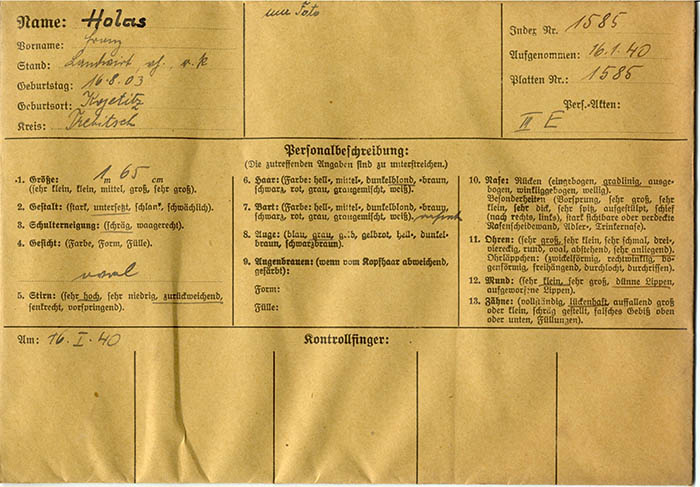 Name: Holas
Vorname: Franz
Stand: Landwirt, vh., r. k
Geburtstag: 16.8.03
Geburtsort: Kojetitz
Kreis: Trebitsch
nur Foto
Index Nr. 1585
Aufgenommen: 16.1.40
Platten Nr.: 1585
Pers.-Akten:
III E
Personalbeschreibung:
(Die zutreffenden Angaben sind zu unterstreichen.)
1. Größe: 1 m 65 cm
(sehr klein, klein, mittel, groß, sehr groß).
2. Gestalt: (stark, untersetzt, schlank, schwächlich).
3. Schulterneigung: (schräg, waagerecht).
4. Gesicht: (Farbe, Form, Fülle).
oval
5. Stirn: (sehr hoch, sehr niedrig, zurückweichend,
senkrecht, vorspringend).
6. Haar: (Farbe: hell-, mittel-, dunkelblond, -braun,
schwarz, rot, grau, graugemischt, weiß).
7. Bart: (Farbe: hell-, mittel-, dunkelblond, -braun,
schwarz, rot, grau, graugemischt, weiß).
8. Auge: (blau, grau, gelb, gelbrot, hell-, dunkel-
braun, schwarzbraun).
9. Augenbrauen: (wenn vom Kopfhaar abweichend,
gefärbt):
Form:
Fülle:
10. Nase: Rücken (eingebogen, gradlinig, ausge-
bogen, winkliggebogen, wellig).
Besonderheiten (Vorsprung, sehr groß, sehr
klein, sehr dick, sehr spitz, aufgestülpt, schief
(nach rechts, links), stark sichtbare oder verdeckte
Nasenscheidewand, Adler-, Trinkernase).
11. Ohren: (sehr groß, sehr klein, sehr schmal, drei-,
viereckig, rund, oval, abstehend, sehr anliegend).
Ohrläppchen: (zwickelförmig, rechtwinklig, bo-
genförmig, freihängend, durchlocht, durchrissen).
12. Mund: (sehr klein, sehr groß, dünne Lippen,
aufgeworfene Lippen).
13. Zähne: (vollständig, lückenhaft, auffallend groß
oder klein, schräg gestellt, falsches Gebiß oben
oder unten, Füllungen).
Am: 16. I. 40
Kontrollfinger: